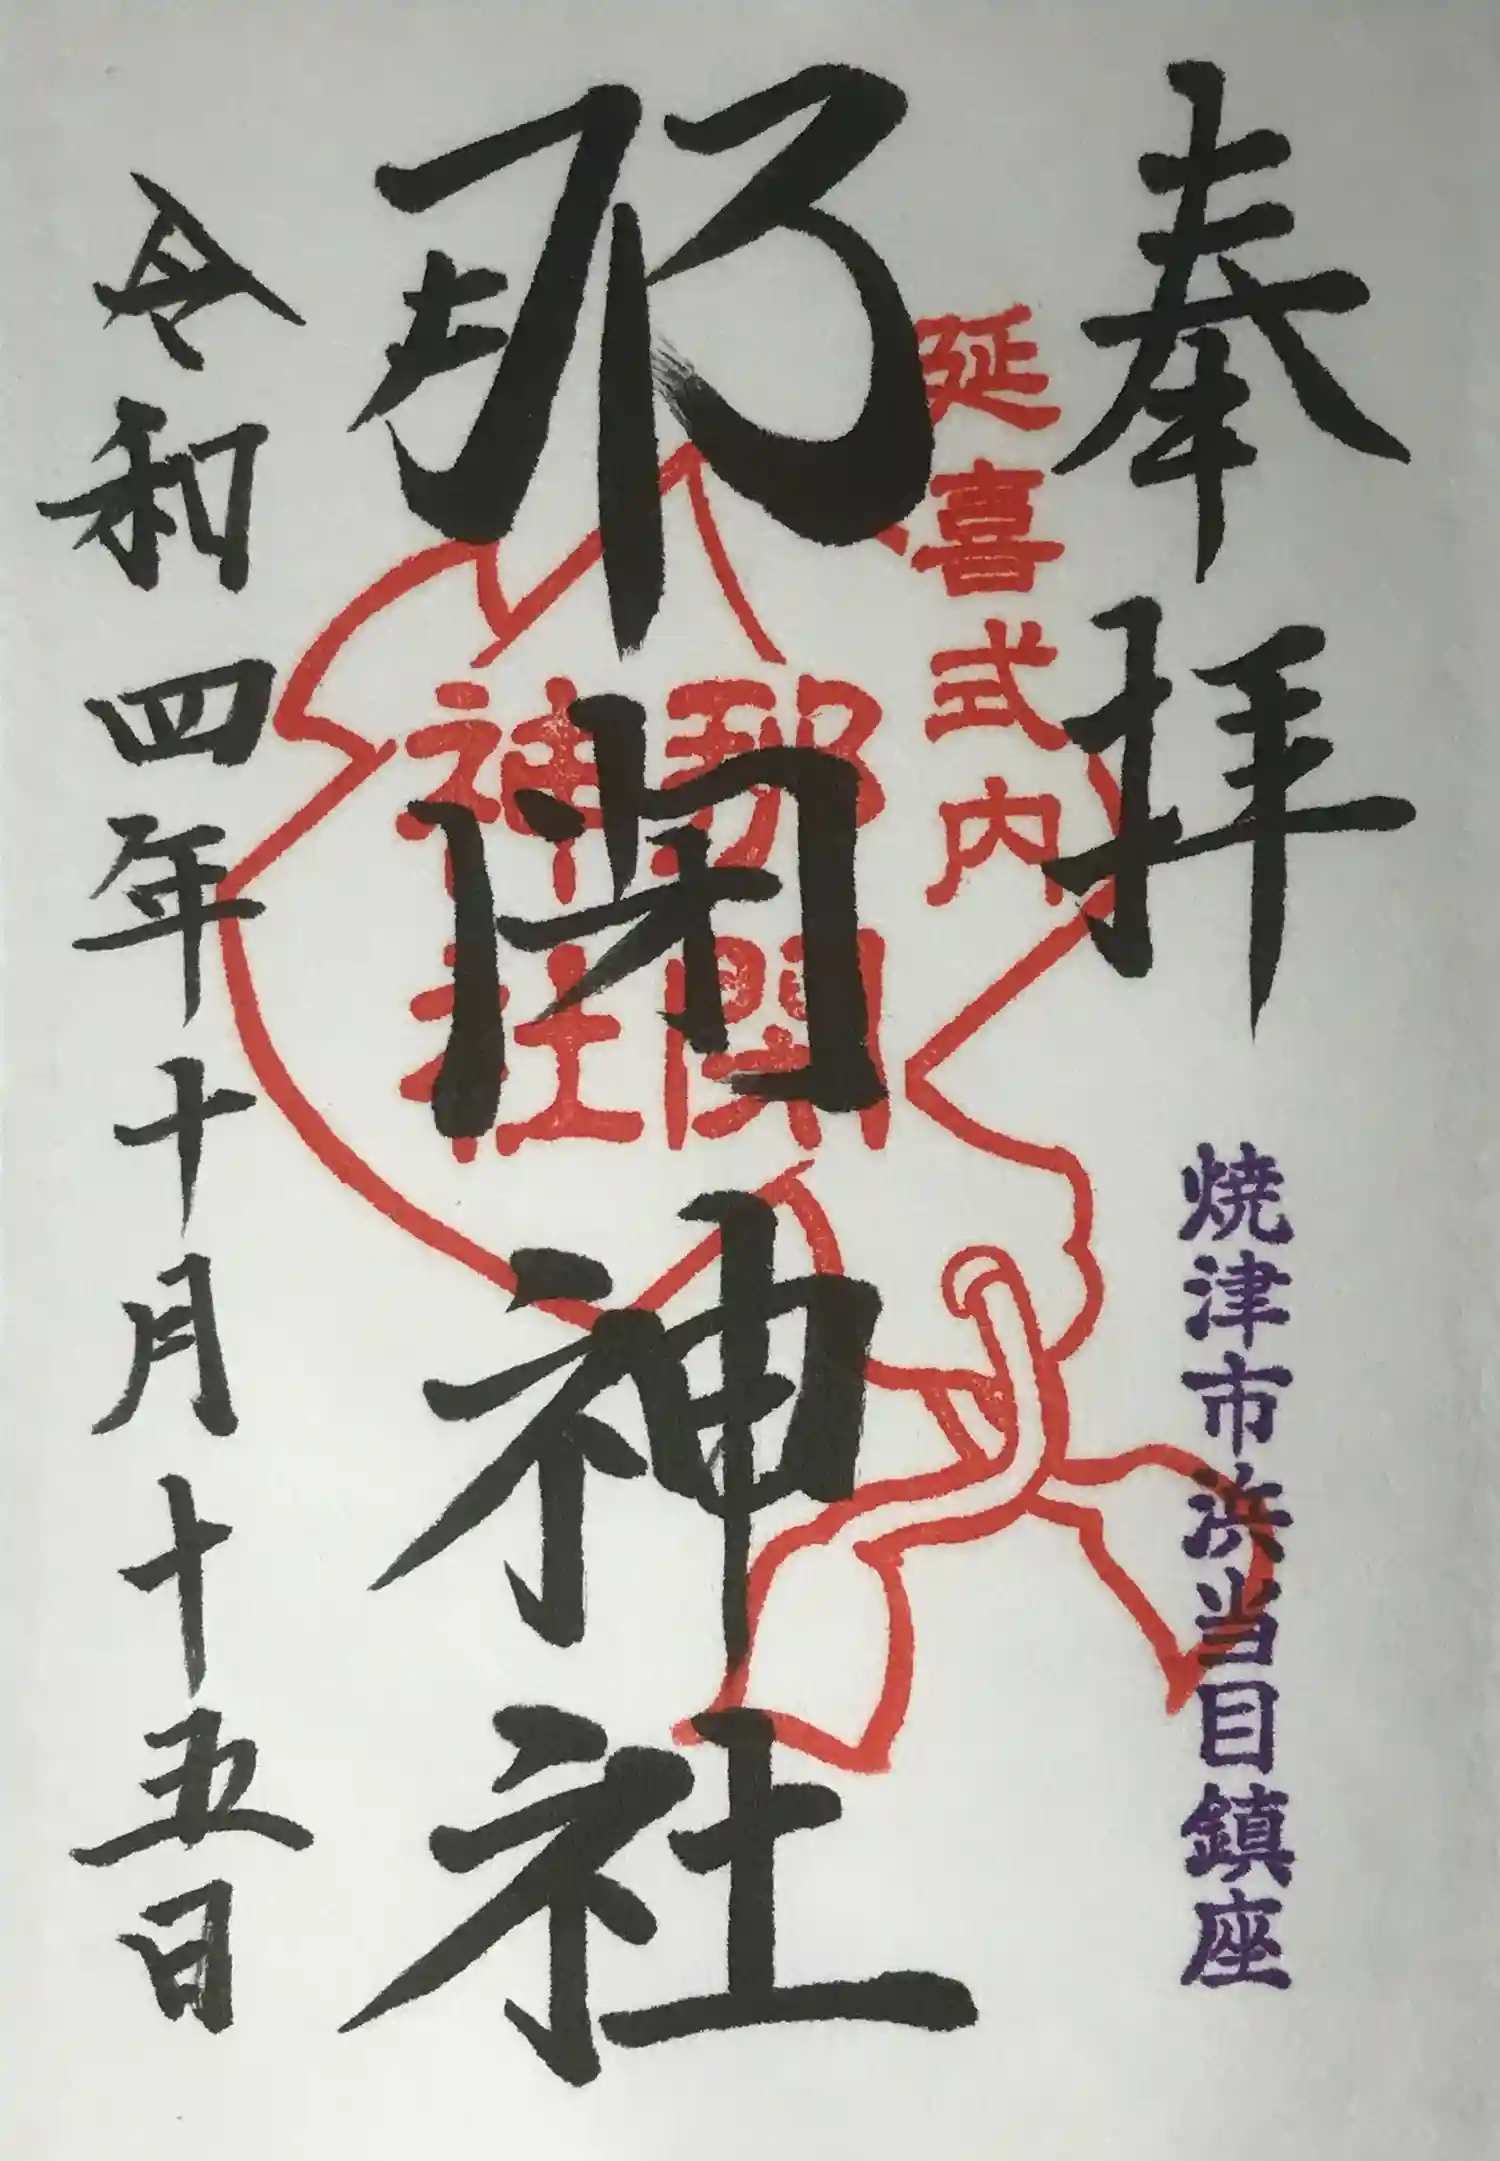 奉拝
焼津市浜当目鎮座
延喜式内
那閉神社
那閉
神社
令和四年十月十五日